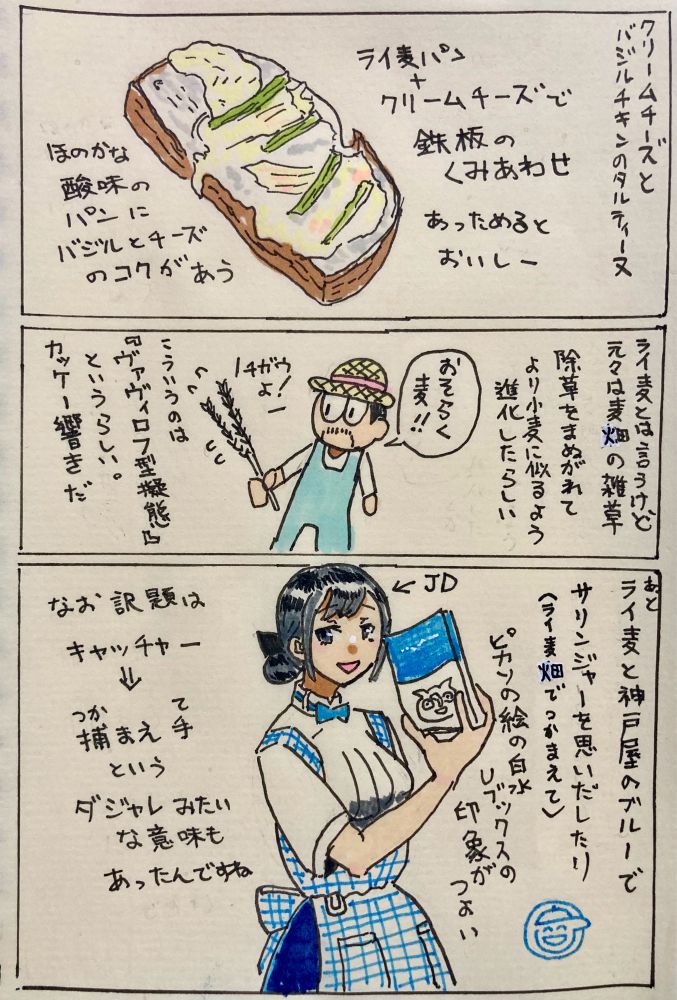 クリームチーズと
バジルチキンのタルティーヌ
ライ麦パン
+
クリームチーズで
鉄板の
くみあわせ
あっためると
おいしー
ほのかな
酸味の
パンに
バジルとチーズ
のコクがあう
ライ麦とは言うけど
元々は麦畑の雑草
除草をまぬがれて
より小麦に似るよう
進化したらしい
おそらく
麦!!
チガウ
よ!
こういうのは
『ヴァヴィロフ型擬態』
というらしい。
カッケー響きだ
あと
ライ麦と神戸屋のブルーで
サリンジャーを思いだしたり
(ライ麦畑でつかまえて)
←JD
ピカソの絵の白水
Uブックスの
印象が
つよい
なお訳題は
キャッチャー
⇓
つか て
捕まえ手
という
ダジャレみたい
な意味も
あったんですね